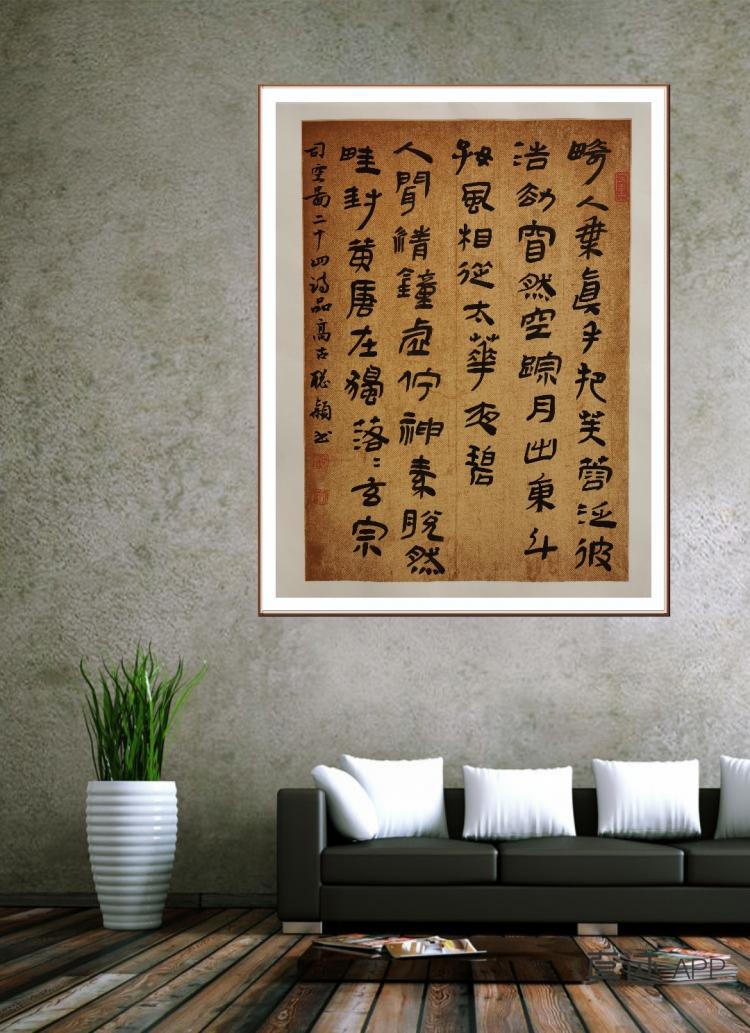 畸人乗眞手把芙蓉泛彼
浩劫窅然空踪月出東斗
好風相從太華夜碧
人聞清鐘虚佇神素脫然
畦封黄唐在獨落〻玄宗
司空啚二十四诗品高古聪颖书
APP